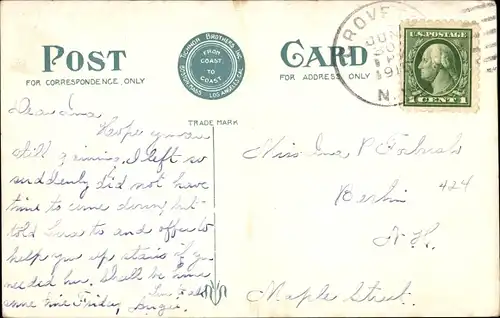 POST CARD
FOR CORRESPONDENCE ONLY
BROTHERS INC.
FROM COAST TO COAST
BOSTON, MASS. LOS ANGELES, CAL.
FOR ADDRESS ONLY
TRADE MARK
ROVE
JUN
30
191
N.
U.S. POSTAGE
1 CENT 1
Dear Ina
Hope you are
still gaining. I left so
suddenly did not have
time to come down but
told to and offer to
help you up stairs if you
needed her. Shall be home
some time Friday,
Miss Ina P
Berlin
424
N.H.
Maple Street.